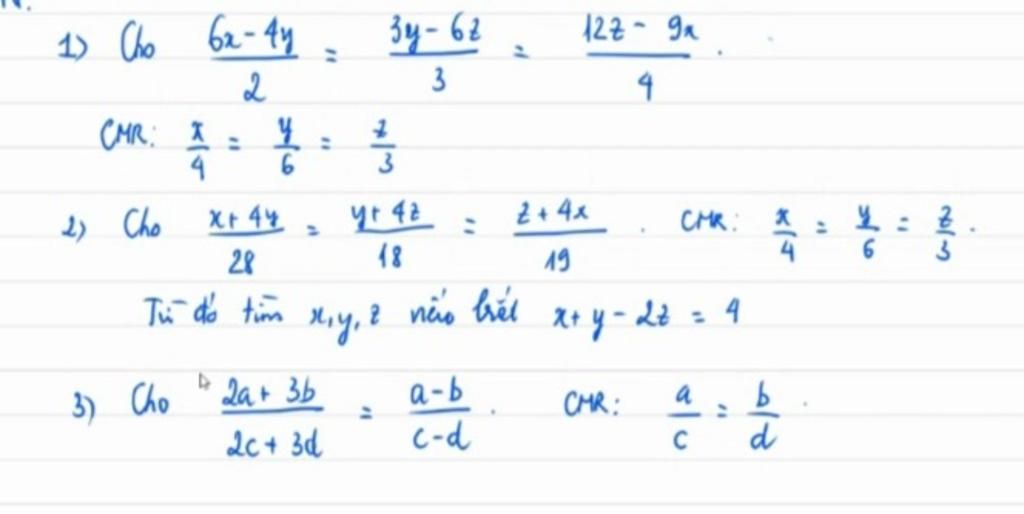 1) Cho (6x - 4y)/2 = (3y - 6z)/3 = (12z - 9x)/4 .
CMR: x/4 = y/6 = z/3
2) Cho (x + 4y)/28 = (y + 4z)/18 = (z + 4x)/19 . CMR: x/4 = y/6 = z/3 .
Từ đó tìm x, y, z nếu biết x + y - 2z = 4
3) Cho (2a + 3b)/(2c + 3d) = (a - b)/(c - d) . CMR: a/c = b/d .